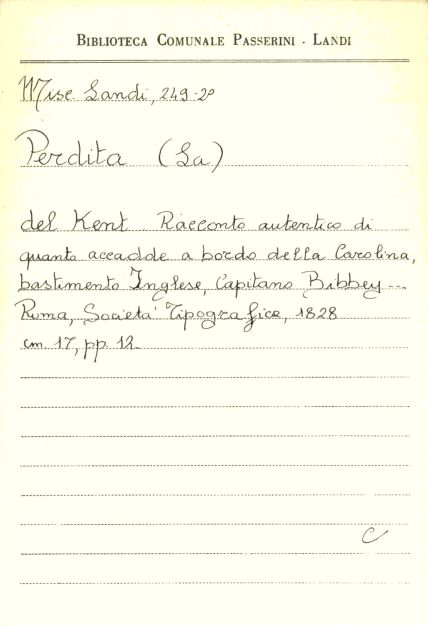 BIBLIOTECA COMUNALE PASSERINI - LANDI
Misc. Landi, 249-20
Perdita (La)
del Kent Racconto autentico di
quanto accadde a bordo della Carolina,
bastimento Inglese, Capitano Bibbey...
Roma, Società Tipografica, 1828
cm. 17, pp. 12.
C